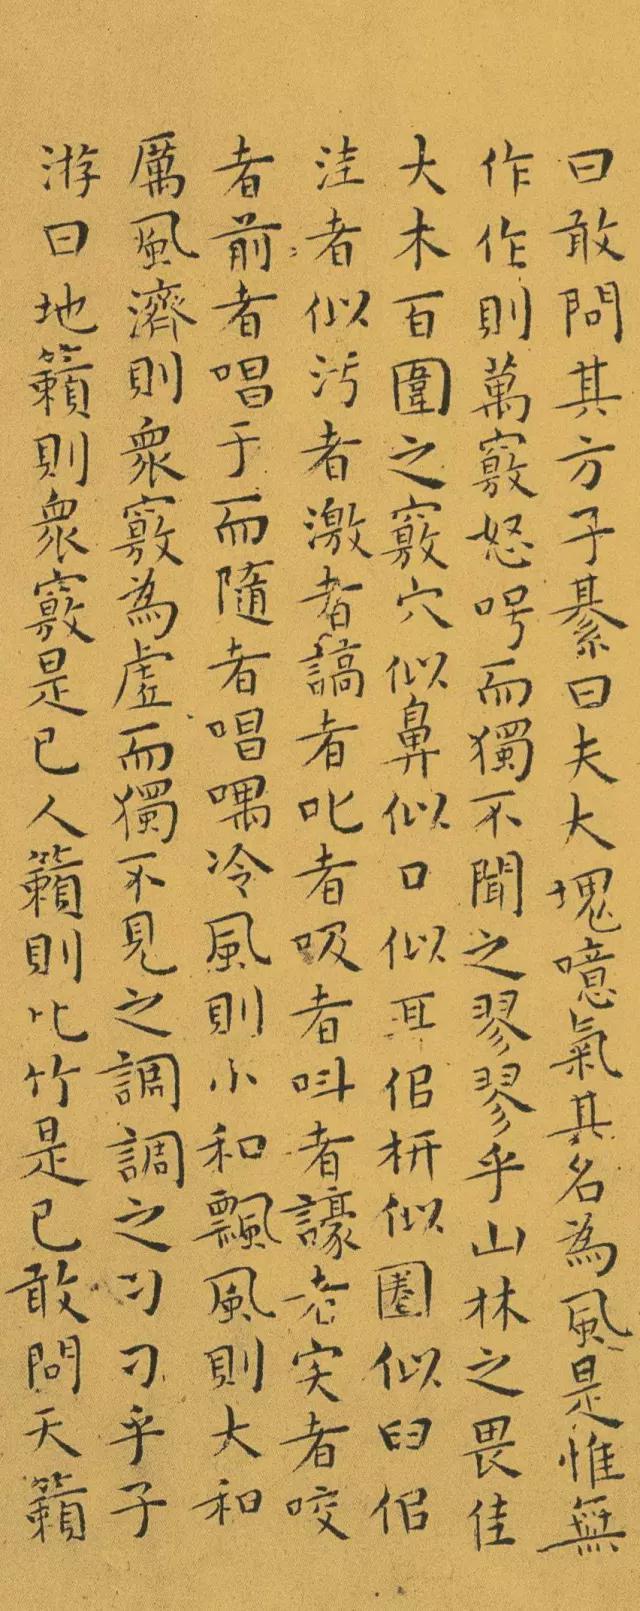 曰敢問其方子綦曰夫大塊噫氣其名為風是惟無
作作則萬竅怒呺而獨不聞之翏翏乎山林之畏佳
大木百圍之竅穴似鼻似口似耳佀枅似圈似臼佀
洼者似污者激者謞者叱者吸者呌者譹者宎者咬
者前者唱于而隨者唱喁冷風則小和飄風則大和
厲風濟則眾竅為虛而獨不見之調調之刁刁乎子
游曰地籟則眾竅是已人籟則比竹是已敢問天籟